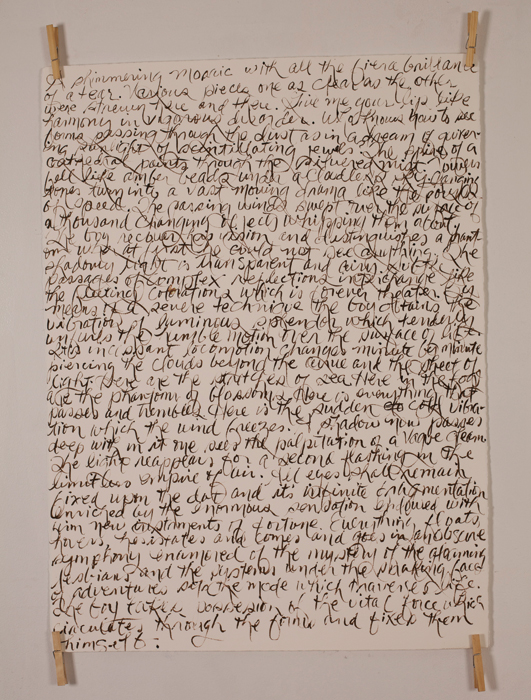 A shimmering mosaic with all the firera brilliance
of a tear. Various pieces one as clear as the other
were strewn here and there. Give me your lips life
harmony in vigorous disorder. thousand
forms passing through the dust as in a dream of quiver-
ing sunlight of scintillating jewels. The spire of a
cathedral points through the silvered mist
fell like amber beads under a cloudless sky. Dancing
turn into a vast moving drama like the
of speed. The passing winds swept over the surface of
a thousand changing objects whipping them about.
The boy recovers and distinguishes a phant-
om what at first he could not see anything. The
shadowy light is transparent and airy.
passages of complex reflections interchange like
the colorations which is forever theater. By
means of a severe technique the boy obtains the
vibration of luminous splendor which tenderly
the motion over the surface of
incessant locomotion changes minute by minute
piercing the clouds beyond the avenue and the street of
light. Here are the stretches of sea. Here in the
are the phantoms of blossoms. Here is everything that
passes and trembles. Here is the sudden cold vibra-
tion which the wind freezes. A shadow now passes
deep within it one sees the palpitation of a vague gleam.
The light reappears for a second flashing in the
limitless empire of air. eyes shall remain
fixed upon the dot and its infinite fragmentation
enriched by the enormous sensation endowed with
new of fortune. Everything floats
hovers hesitates and comes and goes in an obscure
symphony enamored of the mystery of the
lesbians and the systems under the face
of adventures the mode which traverses
The boy takes possession of the vital force which
circulates through the forms and fixes them
himself: